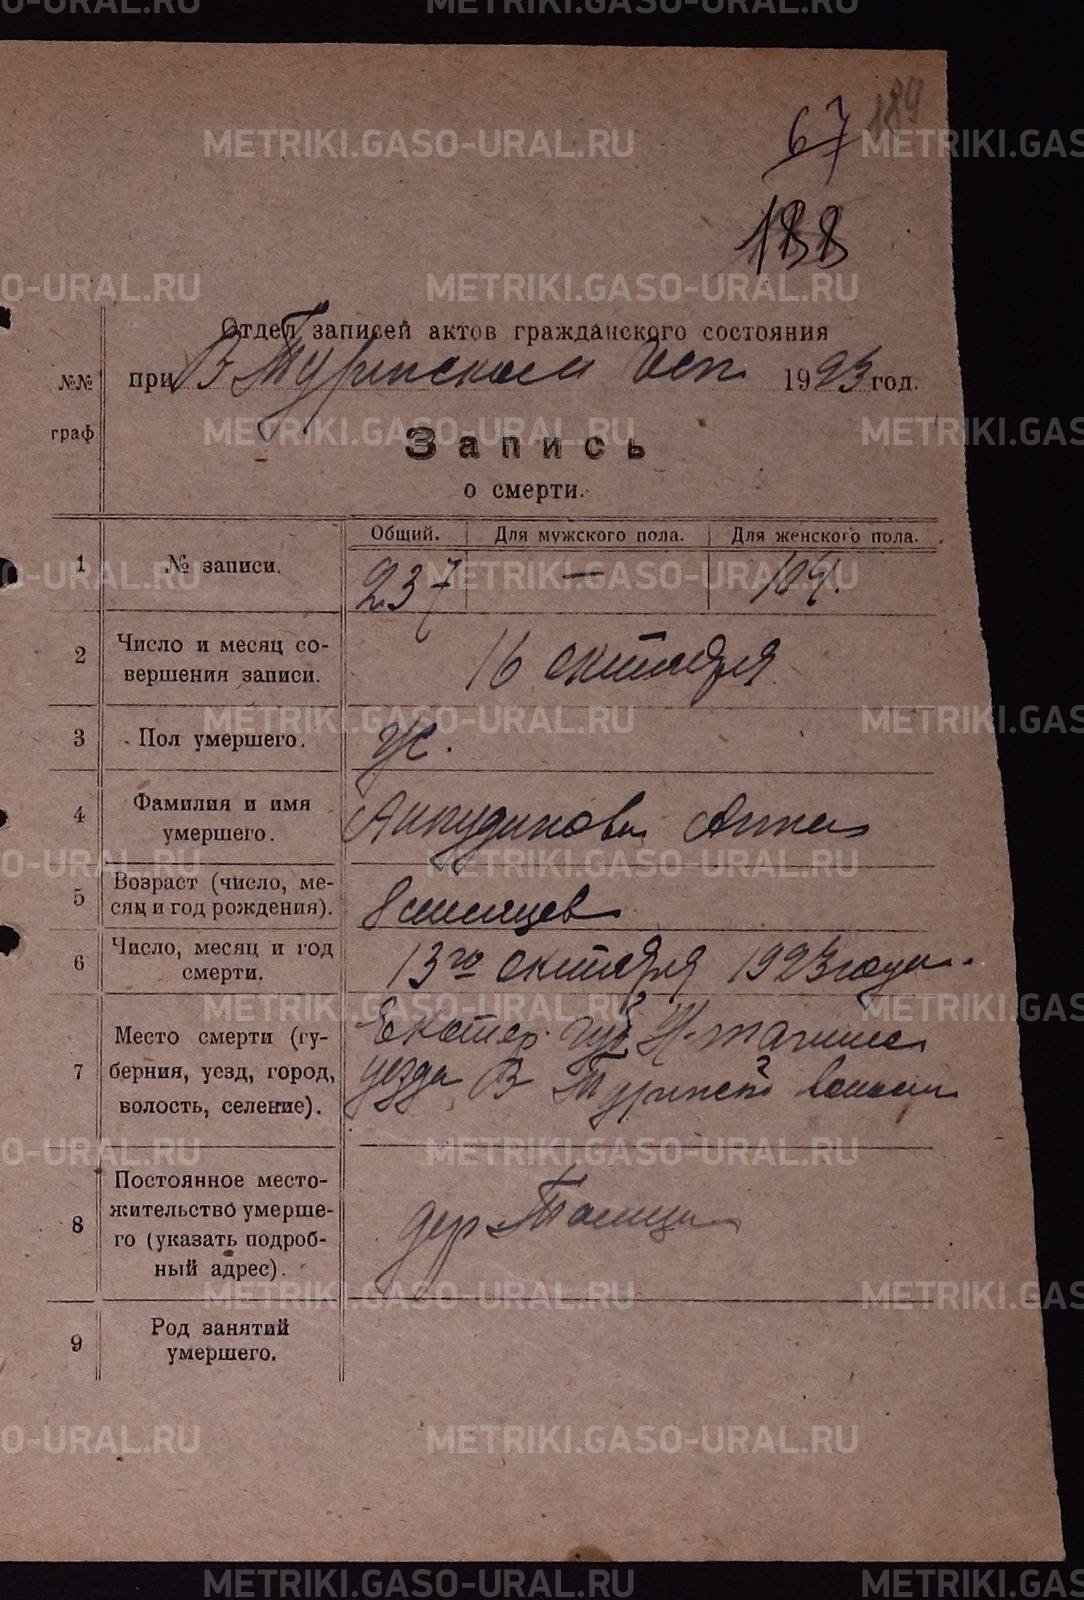 189
67
188
Отдел записей актов гражданского состояния
№№ граф
при В Туринском Исп. 1923 год.
Запись
о смерти.
Общий. Для мужского пола. Для женского пола.
1 № записи. 237 — 104.
2 Число и месяц со-
вершения записи. 16 октября
3 Пол умершего. ж.
4 Фамилия и имя
умершего. Анкудинова Анна
5 Возраст (число, ме-
сяц и год рождения). 8 месяцев
6 Число, месяц и год
смерти. 13го октября 1923 года.
7 Место смерти (гу-
берния, уезд, город,
волость, селение). Екатер. губ. Н-Тагил
уезда В Туринской волости
8 Постоянное место-
жительство умерше-
го (указать подроб-
ный адрес). дер Талица
9 Род занятий
умершего.
METRIKI.GASO-URAL.RU